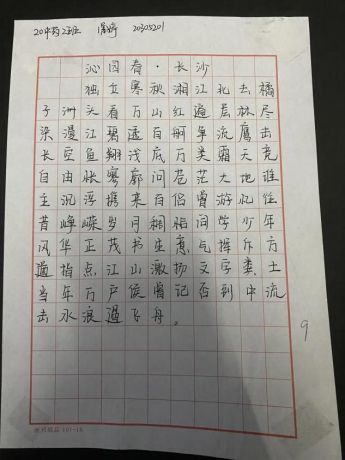 20中药2班 20305201
沁园春·长沙
独立寒秋湘江北去橘
子洲头看万山红遍层林尽
染漫江碧透百舸争流鹰击
长空鱼翔浅底万类霜天竞
自由怅寥廓问苍茫大地谁
主沉浮携来百侣曾游忆往
昔峥嵘岁月稠恰同学少年
风华正茂书生意气挥斥方
遒指点江山激扬文字粪土
当年万户侯曾记否到中流
击水浪遏飞舟。
9